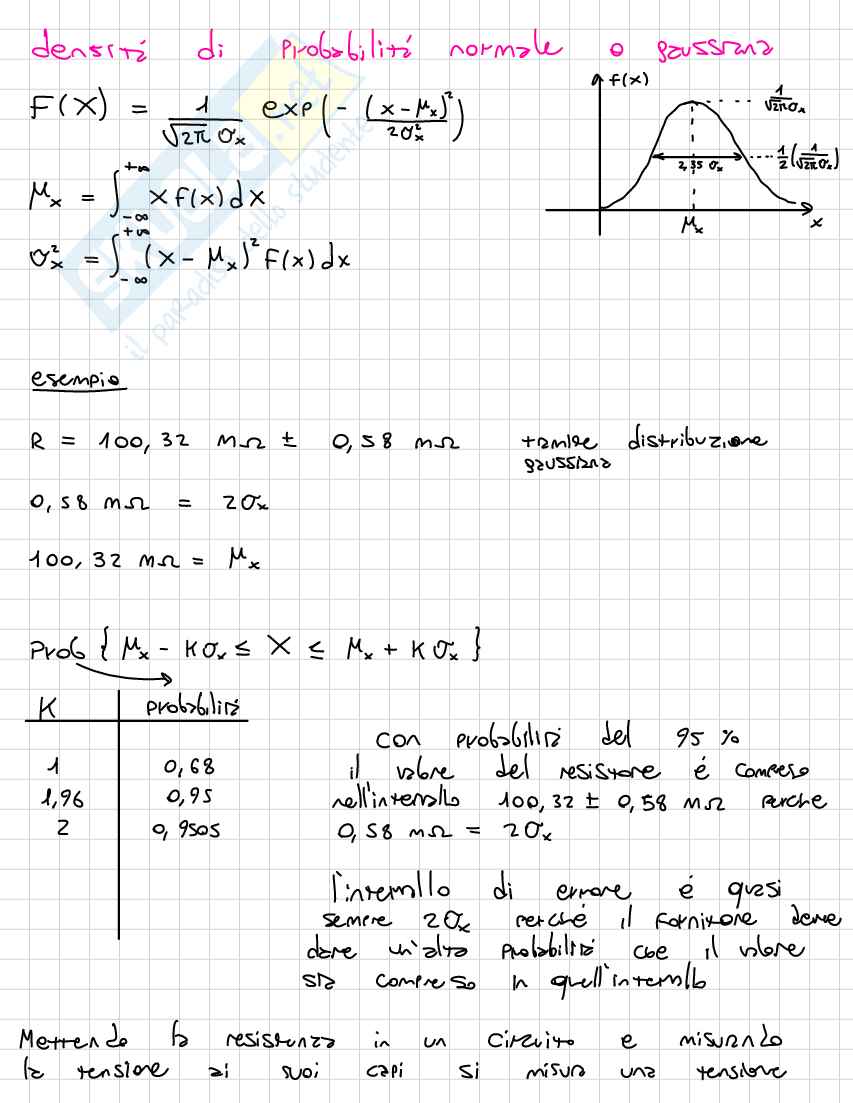 densità di probabilità normale o gaussiana
F(x) = 1/(√2π σx) exp(-(x-μx)²/2σx²)
f(x)
1/(√2π σx)
2,35 σx
1/2 (1/(√2π σx))
μx
x
μx = ∫-∞+∞ x f(x) dx
σx² = ∫-∞+∞ (x-μx)² F(x) dx
SKUOLA.net
il paradiso dello studente
esempio
R = 100,32 mΩ ± 0,58 mΩ tramite distribuzione
gaussiana
0,58 mΩ = 2σx
100,32 mΩ = μx
Prob { μx - Kσx ≤ X ≤ μx + Kσx }
K probabilità
1 0,68
1,96 0,95
2 0,9505
con probabilità del 95 %
il valore del resistore é compreso
nell'intervallo 100,32 ± 0,58 mΩ perche
0,58 mΩ = 2σx
l'intervallo di errore é quasi
sempre 2σx perché il fornitore deve
dare un'alta probabilità che il valore
sia compreso in quell'intervallo
Mettendo la resistenza in un circuito e misurando
la tensione ai suoi capi si misura una tensione